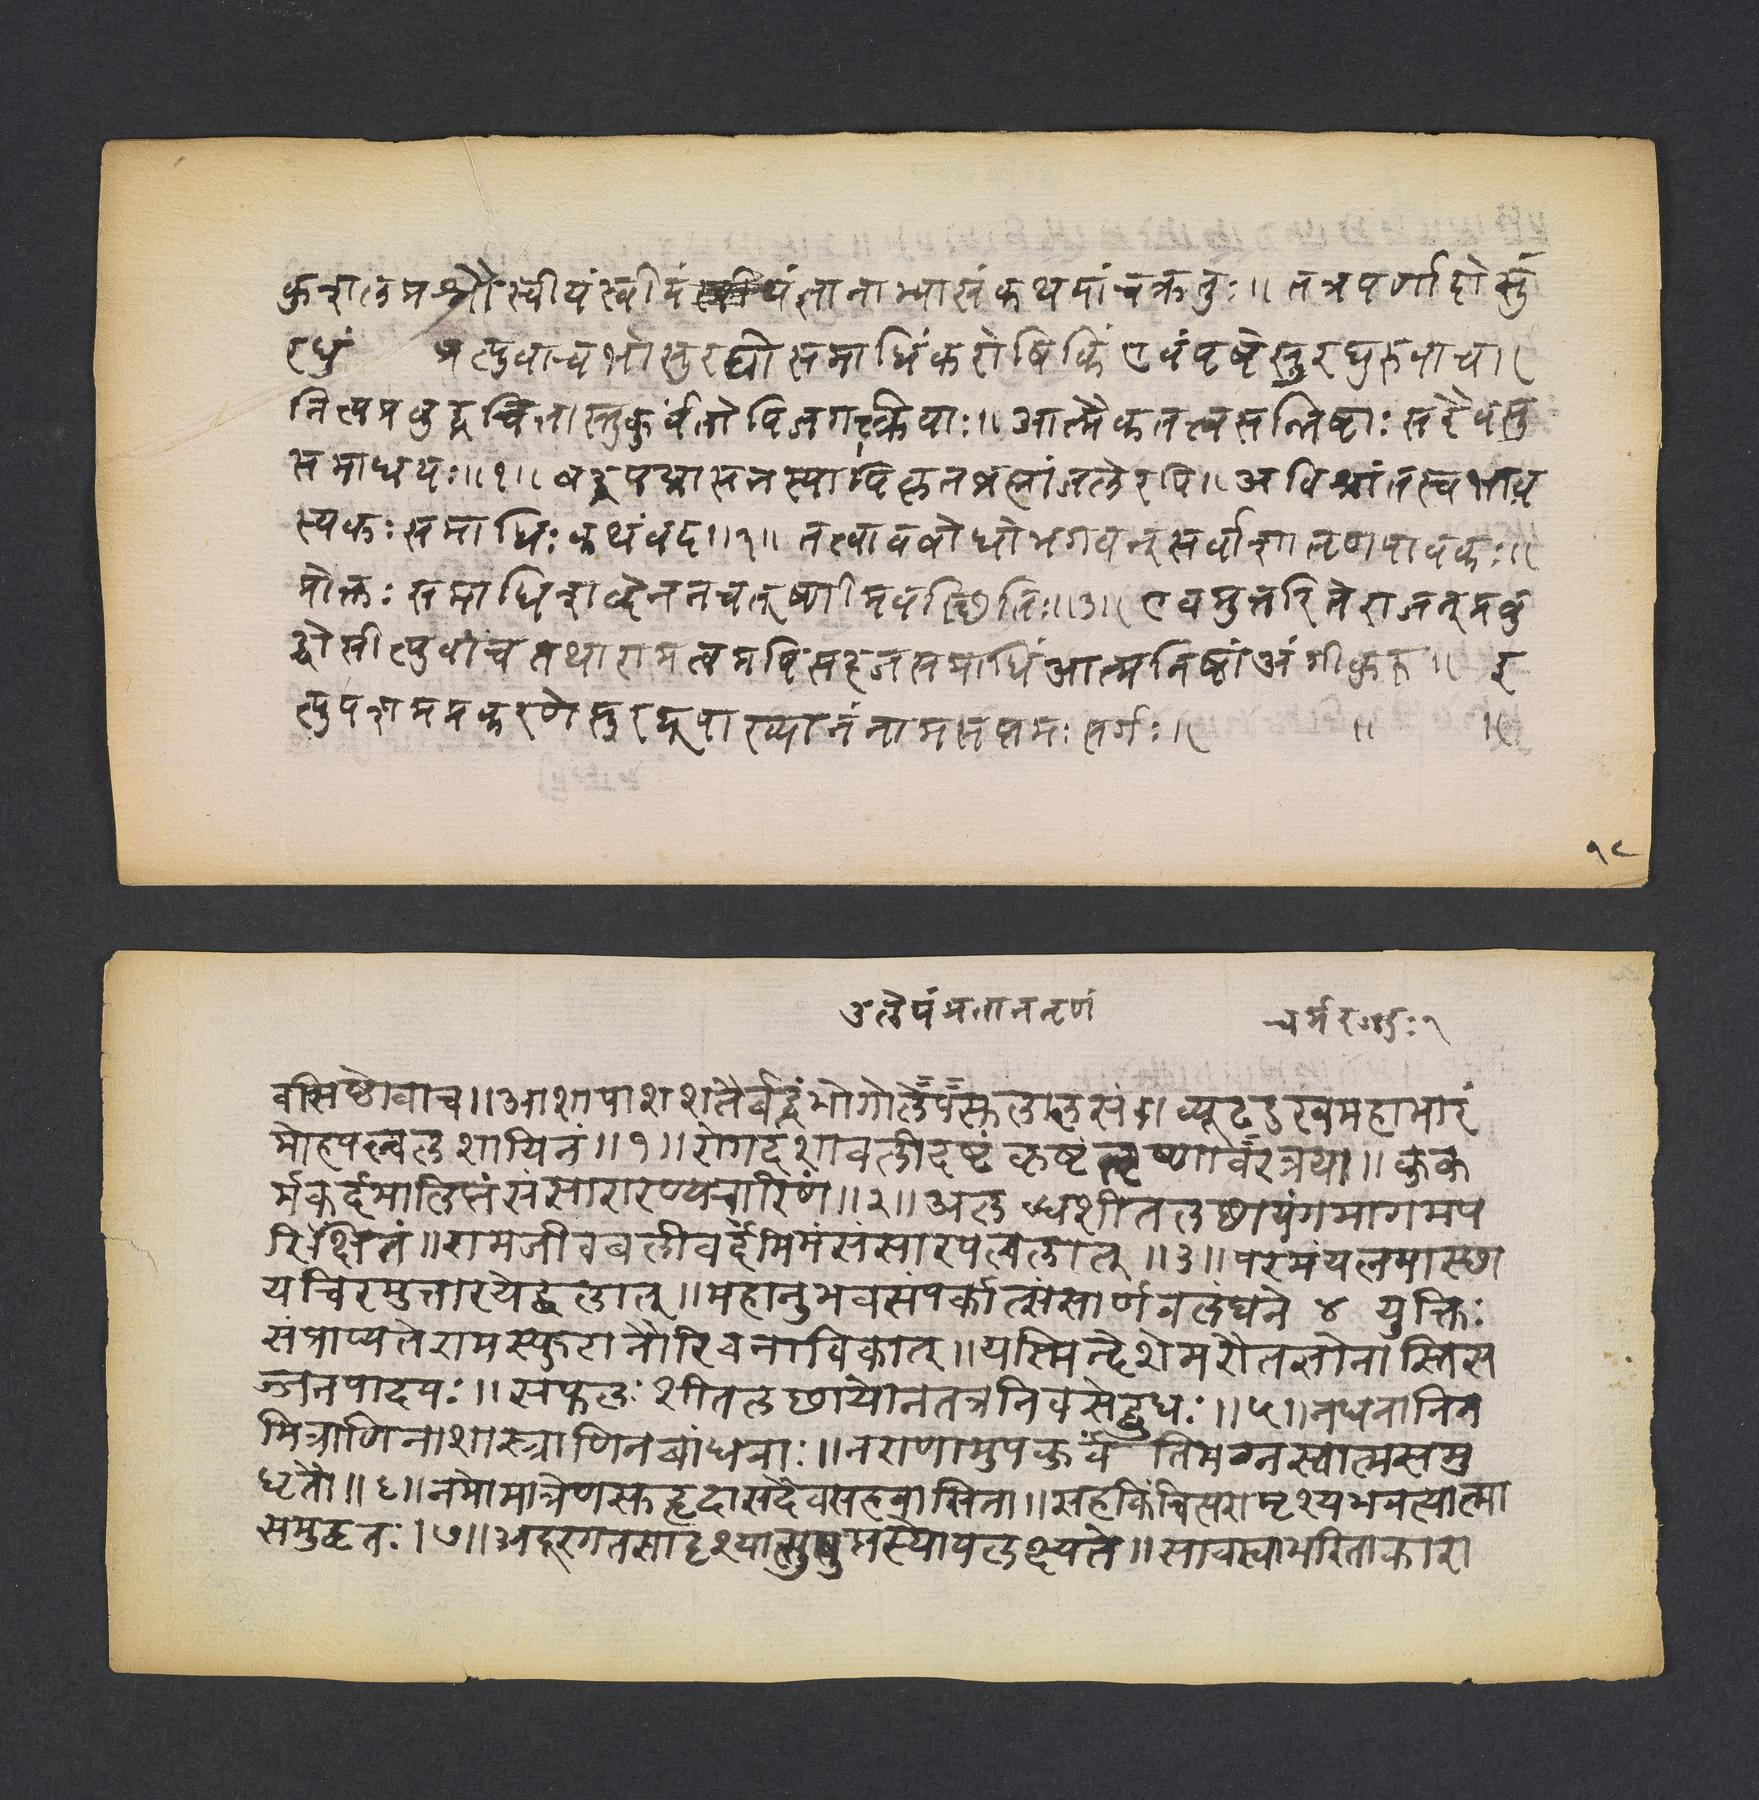 कुशलप्रश्नौ स्वीयं स्वीयं ज्ञानाभ्यासं कथयांचक्रतुः॥ तत्रपर्णादो सु
रघुं प्रत्युवाच भो सुरघो समाधिं करोषि किं एवं पृष्टे सुरघुरुवाच॥
नित्यप्रबुद्धचित्तास्तु कुर्वंतोपि जगत्क्रियाः॥ आत्मैकतत्त्वसन्निष्टाः सदैव सु
समाधयः॥१॥ बद्धपद्मासनस्यापि कृतब्रह्मांजलेरपि॥ अविश्रांतस्वभाव
स्य कः समाधिः कथं वद॥२॥ तत्त्वावबोधो भगवन् सर्वाशातृणपावकः॥
प्रोक्तः समाधिशब्देन न च तूष्णीमवस्थितिः॥३॥ एवमुत्तरिते राजन् प्रबु
द्धोसीत्युवाच तथा राम त्वमपि सहजसमाधिं आत्मनिष्टां अंगीकुरु॥ इ
त्युपशमप्रकरणे सुरघूपाख्यानं नाम सप्तमः सर्गः॥ ॥ ॥
१८
उलपं प्रतानतृणं चर्मरज्जुः २
वसिष्ठोवाच॥ आशापाशशतैर्बद्धं भोगोलपसलालसं॥ व्यूढदुःखमहाभारं
मोहपल्वलशायिनं॥१॥ रोगदंशावलीदष्टं कृष्टं तृष्णावरत्रया॥ कुक
र्मकर्दमालिप्तं संसारारण्यचारिणं॥२॥ अलब्धशीतलछायं गमागमप
रिक्षितं॥ राम जीवबलीवर्दमिमं संसारपल्वलात्॥३॥ परमं यत्नमास्छा
य चिरमुत्तारयेद्बलात्॥ महानुभवसंपर्कात्संसार्णवलंघने ४ युक्तिः
संप्राप्यते राम स्फुटा नौरिव नाविकात्॥ यस्मिन्देशे मरौ तज्ञो नास्ति स
ज्जनपादपः॥ सफलः शीतलछायो न तत्र निवसेद्बुधः॥५॥ न धनानि न
मित्राणि नाशास्त्राणि न बांधवाः॥ नराणामुपकुर्व तिमग्नस्वात्मसमु
धृतौ॥६॥ नमोमात्रेण सहृदा सदैव सहवासिना॥ सह किंचित्परामृश्य भवत्यात्मा
समुद्धृतः।७॥ अदूरगतसादृश्यात्सुषुप्तस्योपलक्ष्यते॥ सावस्वाभरिताकारा